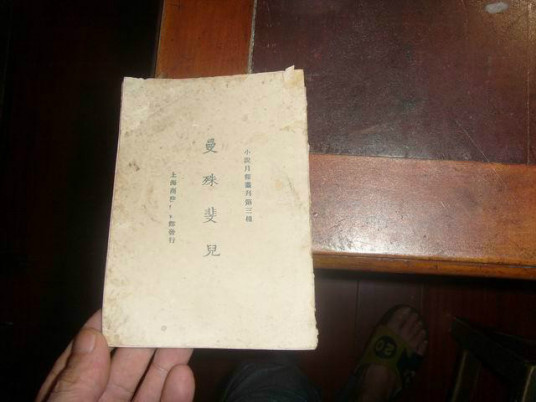 小說月報叢刊第三種
曼殊斐兒
上海商務印書館發行